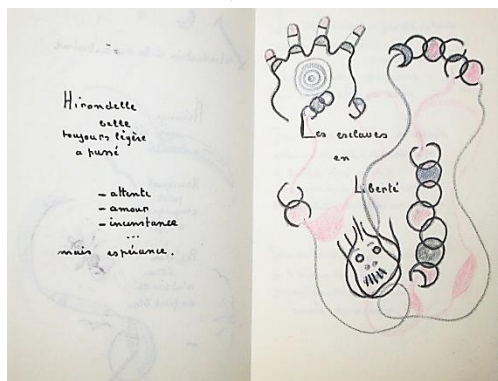 Hirondelle
belle
toujours légère
a passé
- attente
- amour
- inconstance
...
mais espérance.
Les esclaves
en
Liberté